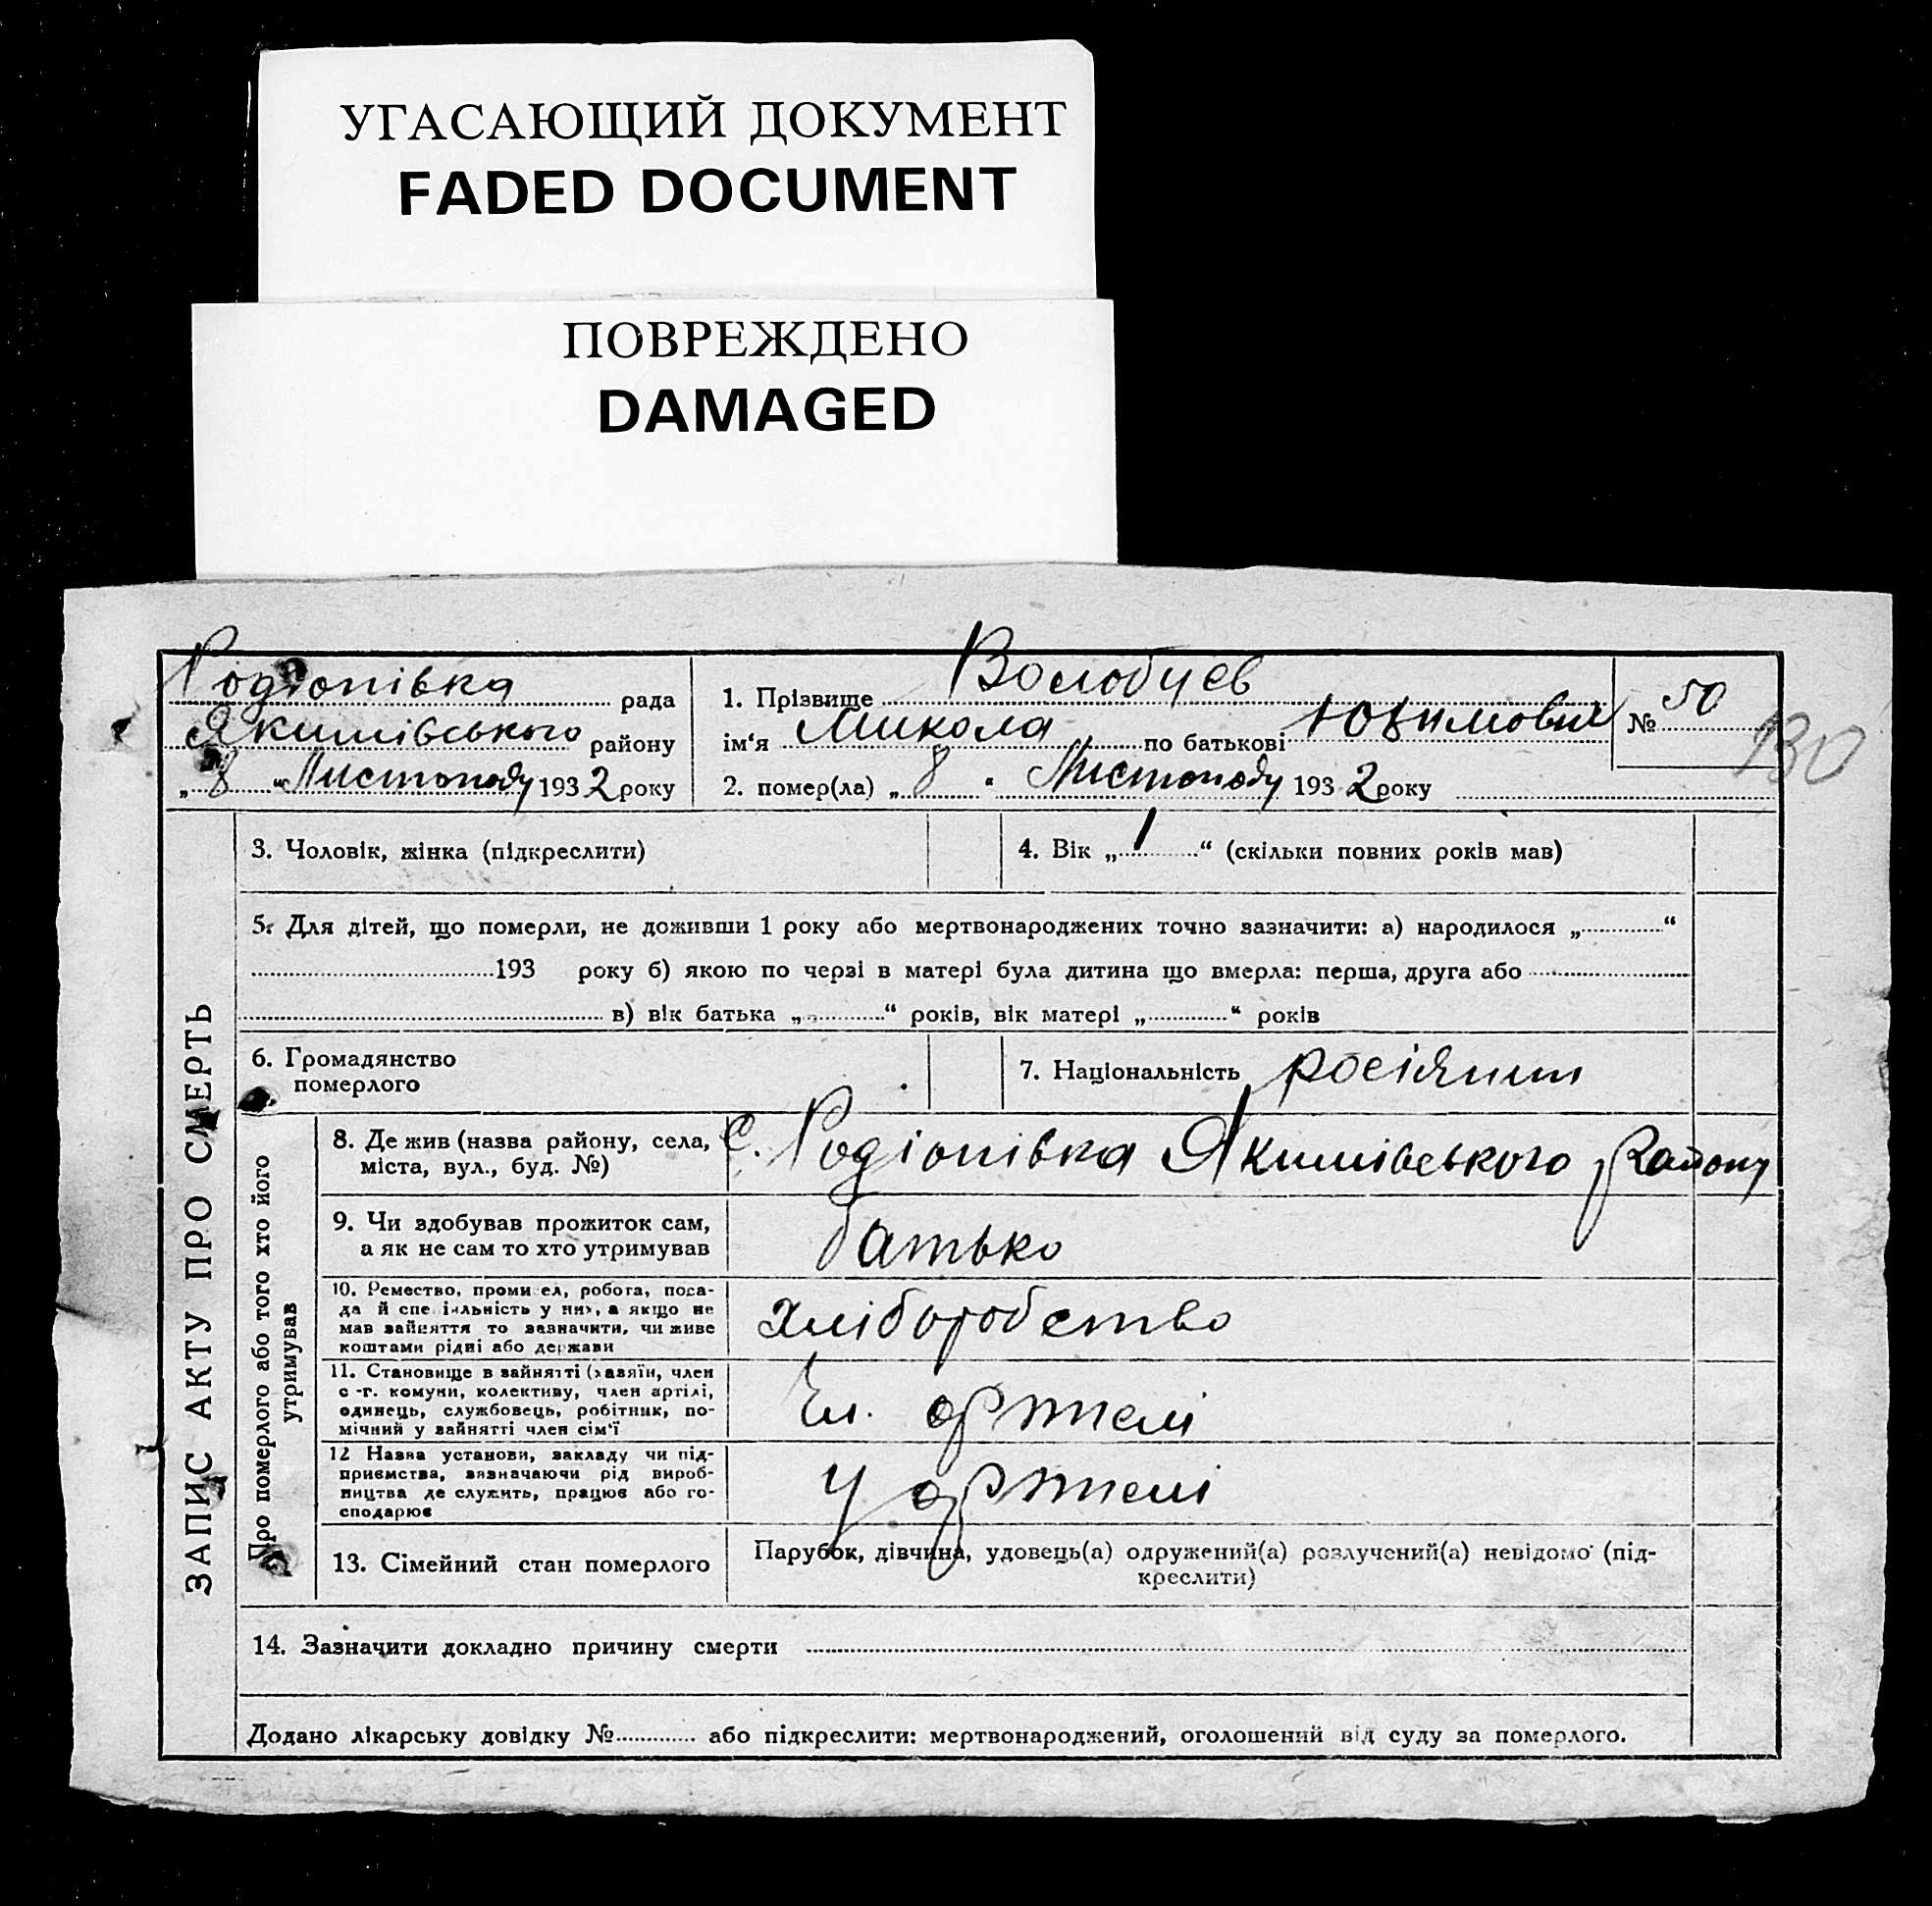 УГАСАЮЩИЙ ДОКУМЕНТ
FADED DOCUMENT
ПОВРЕЖДЕНО
DAMAGED
Родіонівка рада
Якимівського району
„ 8 “ Листопаду 1932 року
1. Прізвище Волобуєв
ім‘я Микола по батькові Юхимович
2. помер(ла) „ 8 “ Листопаду 1932 року
№ 50
130
ЗАПИС АКТУ ПРО СМЕРТЬ
3. Чоловік, жінка (підкреслити)
4. Вік „ 1 “ (скільки повних років мав)
5. Для дітей, що померли, не доживши 1 року або мертвонароджених точно зазначити: а) народилося „ “
193 року б) якою по черзі в матері була дитина що вмерла: перша, друга або
в) вік батька „ “ років, вік матері „ “ років
6. Громадянство
померлого
7. Національність росіянин
Про померлого або того хто його
утримував
8. Де жив (назва району, села,
міста, вул., буд. №)
с. Родіонівка Якимівського району
9. Чи здобував прожиток сам,
а як не сам то хто утримував
батько
10. Ремество, промисел, робота, поса-
да й спеціяльність у них, а якщо не
мав зайняття то зазначити, чи живе
коштами рідні або держави
хліборобство
11. Становище в зайнятті (хазяїн, член
с.-г. комуни, колективу, член артілі,
одинець, службовець, робітник, по-
мічний у зайнятті член сім‘ї
Чл. артелі
12 Назва установи, закладу чи під-
приємства, зазначаючи рід вироб-
ництва де служить, працює або го-
сподарює
У артелі
13. Сімейний стан померлого
Парубок, дівчина, удовець(а) одружений(а) розлучений(а) невідомо (під-
креслити)
14. Зазначити докладно причину смерти
Додано лікарську довідку № або підкреслити: мертвонароджений, оголошений від суду за померлого.